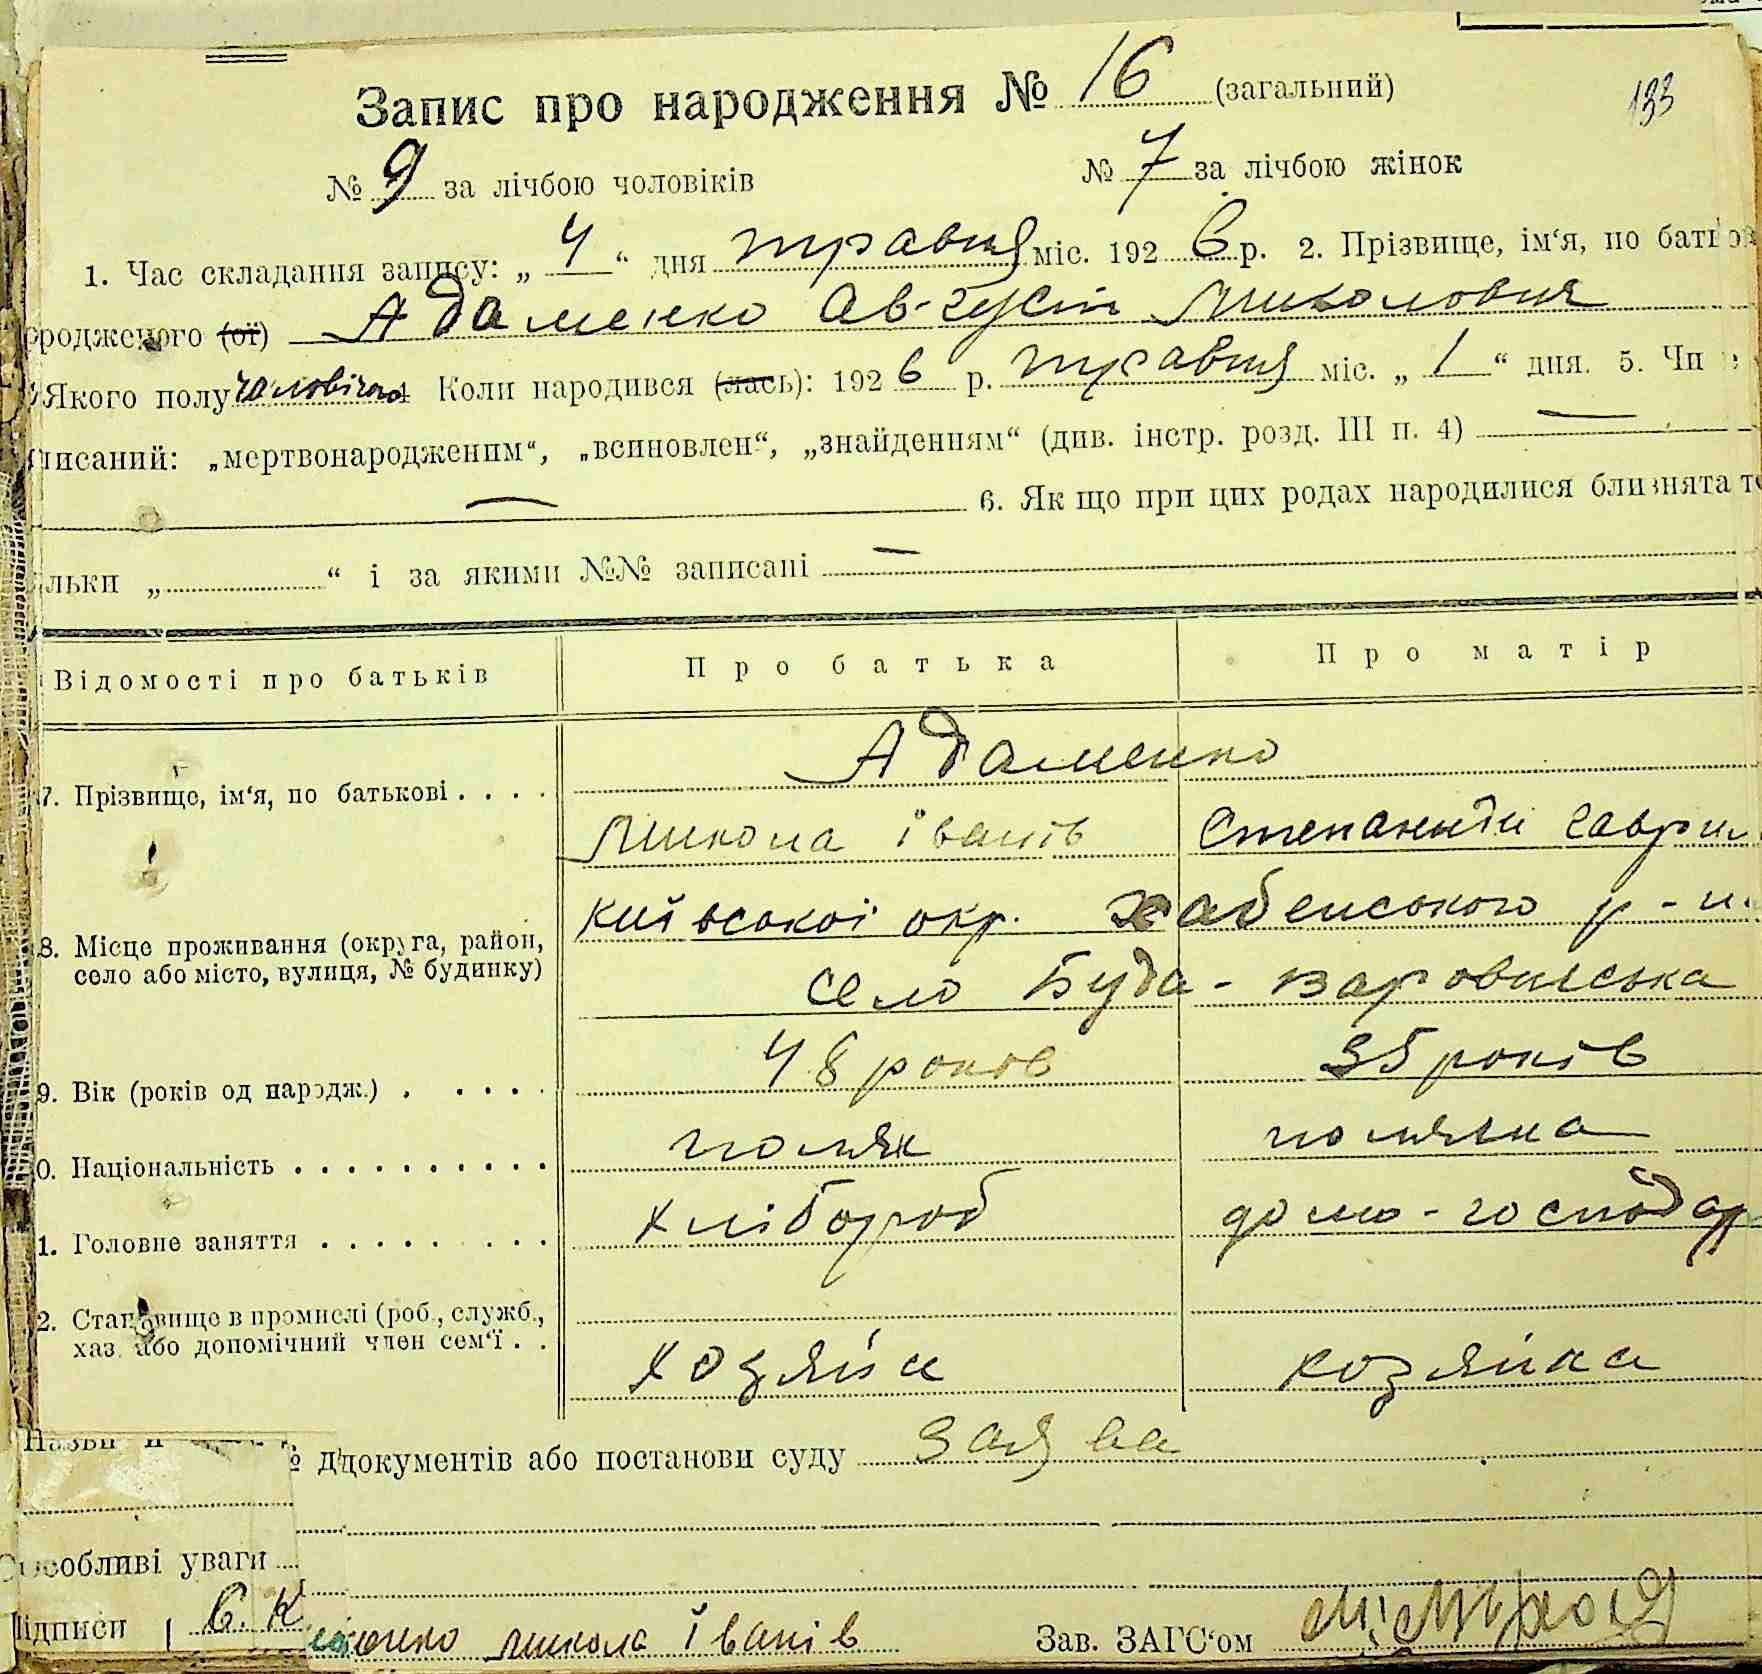 Запис про народження № 16 (загальний)
133
№ 9 за лічбою чоловіків № 7 за лічбою жінок
1. Час складання запису: „ 4 “ дня травня міс. 1926 р. 2. Прізвище, ім‘я, по батьков
родженого (ої) Адаменко Ав-густ Миколовия
Якого полу чоловічого 4 Коли народився (лась): 1926 р. травня міс. „ 1 “ дня. 5. Чи
писаний: „мертвонародженим“, „всиновлен“, „знайденням“ (див. інстр. розд. III п. 4) —
— 6. Як що при цих родах народилися близнята то
льки „ “ і за якими №№ записані —
Відомості про батьків Про батька Про матір
7. Прізвище, ім‘я, по батькові . . . . Адаменко
Микола Іванів Степанида Гаврил
8. Місце проживання (округа, район, село або місто, вулиця, № будинку) Київської окр. Хабенського р-н
село Буда-Варовичська
9. Вік (років од народж.) . . . . . 48 років 35 років
0. Національність . . . . . . . . . . поляк полячка
1. Головне заняття . . . . . . . . хлібороб домо-господар
2. Становище в промислі (роб., служб., хаз. або допомічний член сем‘ї . . хозяїн хозяйка
Назви й № документів або постанови суду заява
Особливі уваги
Підписи С. К Микола Іванів Зав. ЗАГС‘ом